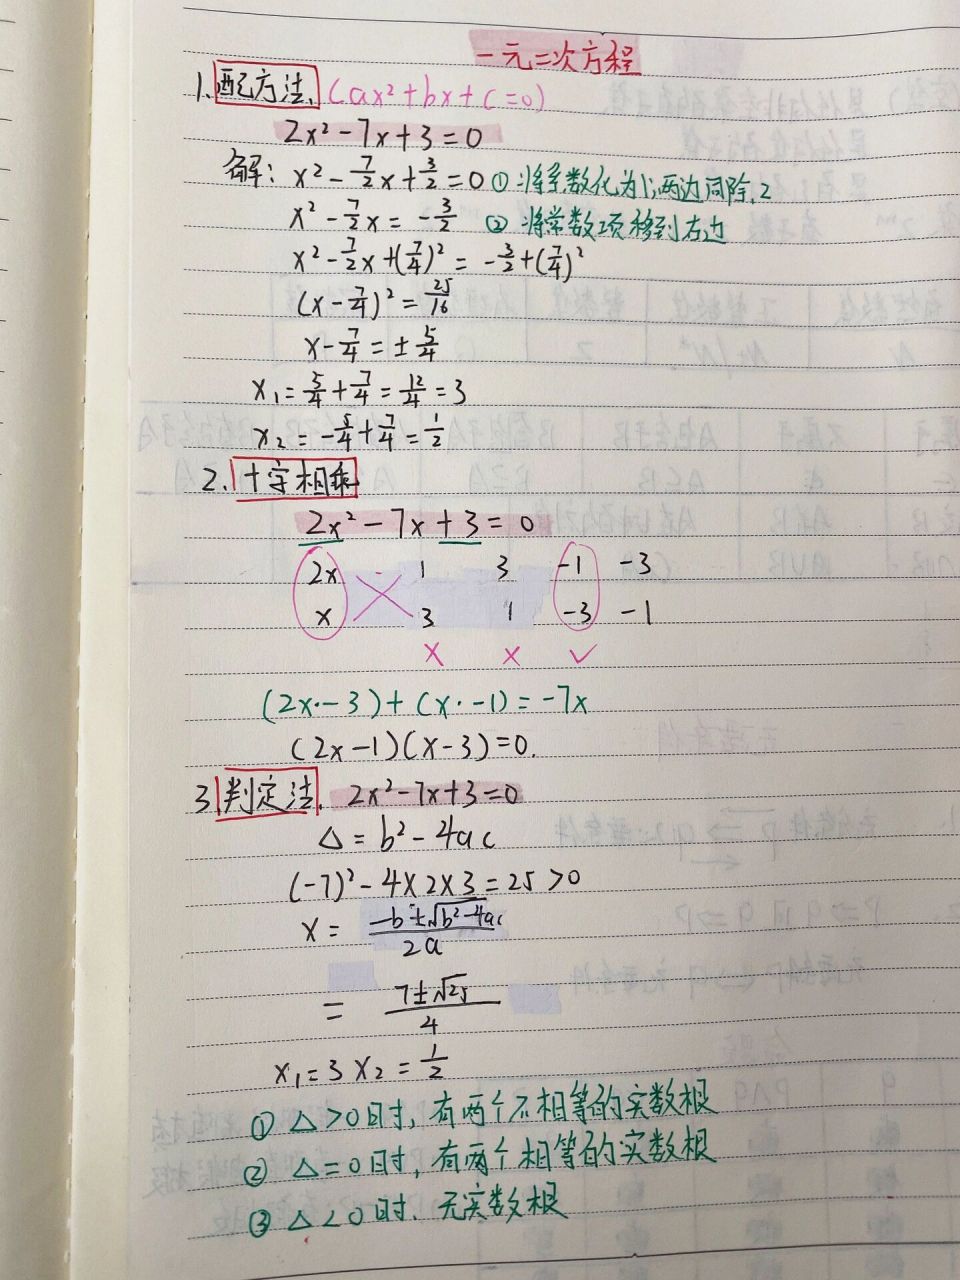 一元二次方程
1. 配方法. (ax²+bx+c=0)
2x²-7x+3=0
解: x²-7/2x+3/2=0 ①将系数化为1,两边同除2
x²-7/2x=-3/2 ②将常数项移到右边
x²-7/2x+(7/4)²=-3/2+(7/4)²
(x-7/4)²=25/16
x-7/4=±5/4
x₁=5/4+7/4=12/4=3
x₂=-5/4+7/4=1/2
2. 十字相乘
2x²-7x+3=0
2x 1 3 -1 -3
x 3 1 -3 -1
× × ✓
(2x·-3)+(x·-1)=-7x
(2x-1)(x-3)=0.
3. 判定法. 2x²-7x+3=0
Δ=b²-4ac
(-7)²-4×2×3=25>0
x=(-b±√(b²-4ac))/2a
=(7±√25)/4
x₁=3 x₂=1/2
①Δ>0时,有两个不相等的实数根
②Δ=0时,有两个相等的实数根
③Δ<0时.无实数根